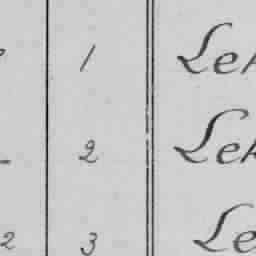 1 Lek
2 Lek
2 3 Le